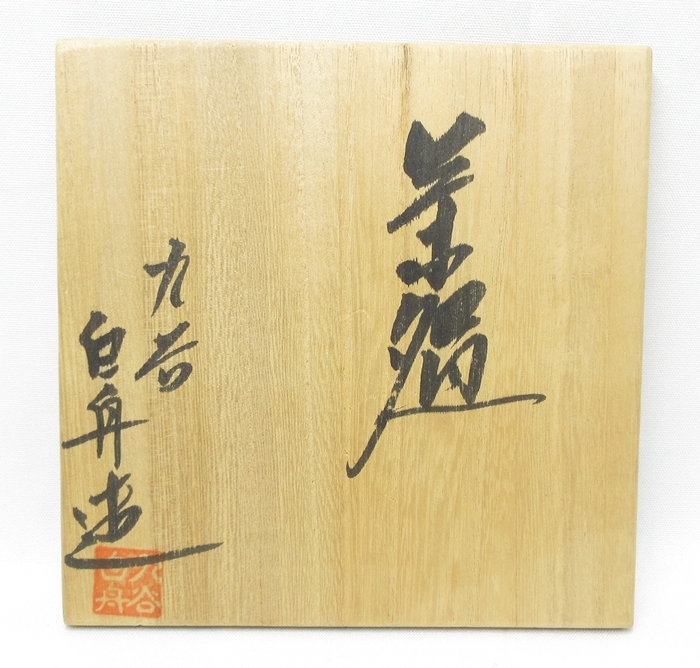 茶盌
九谷
白舟造
九谷
白舟